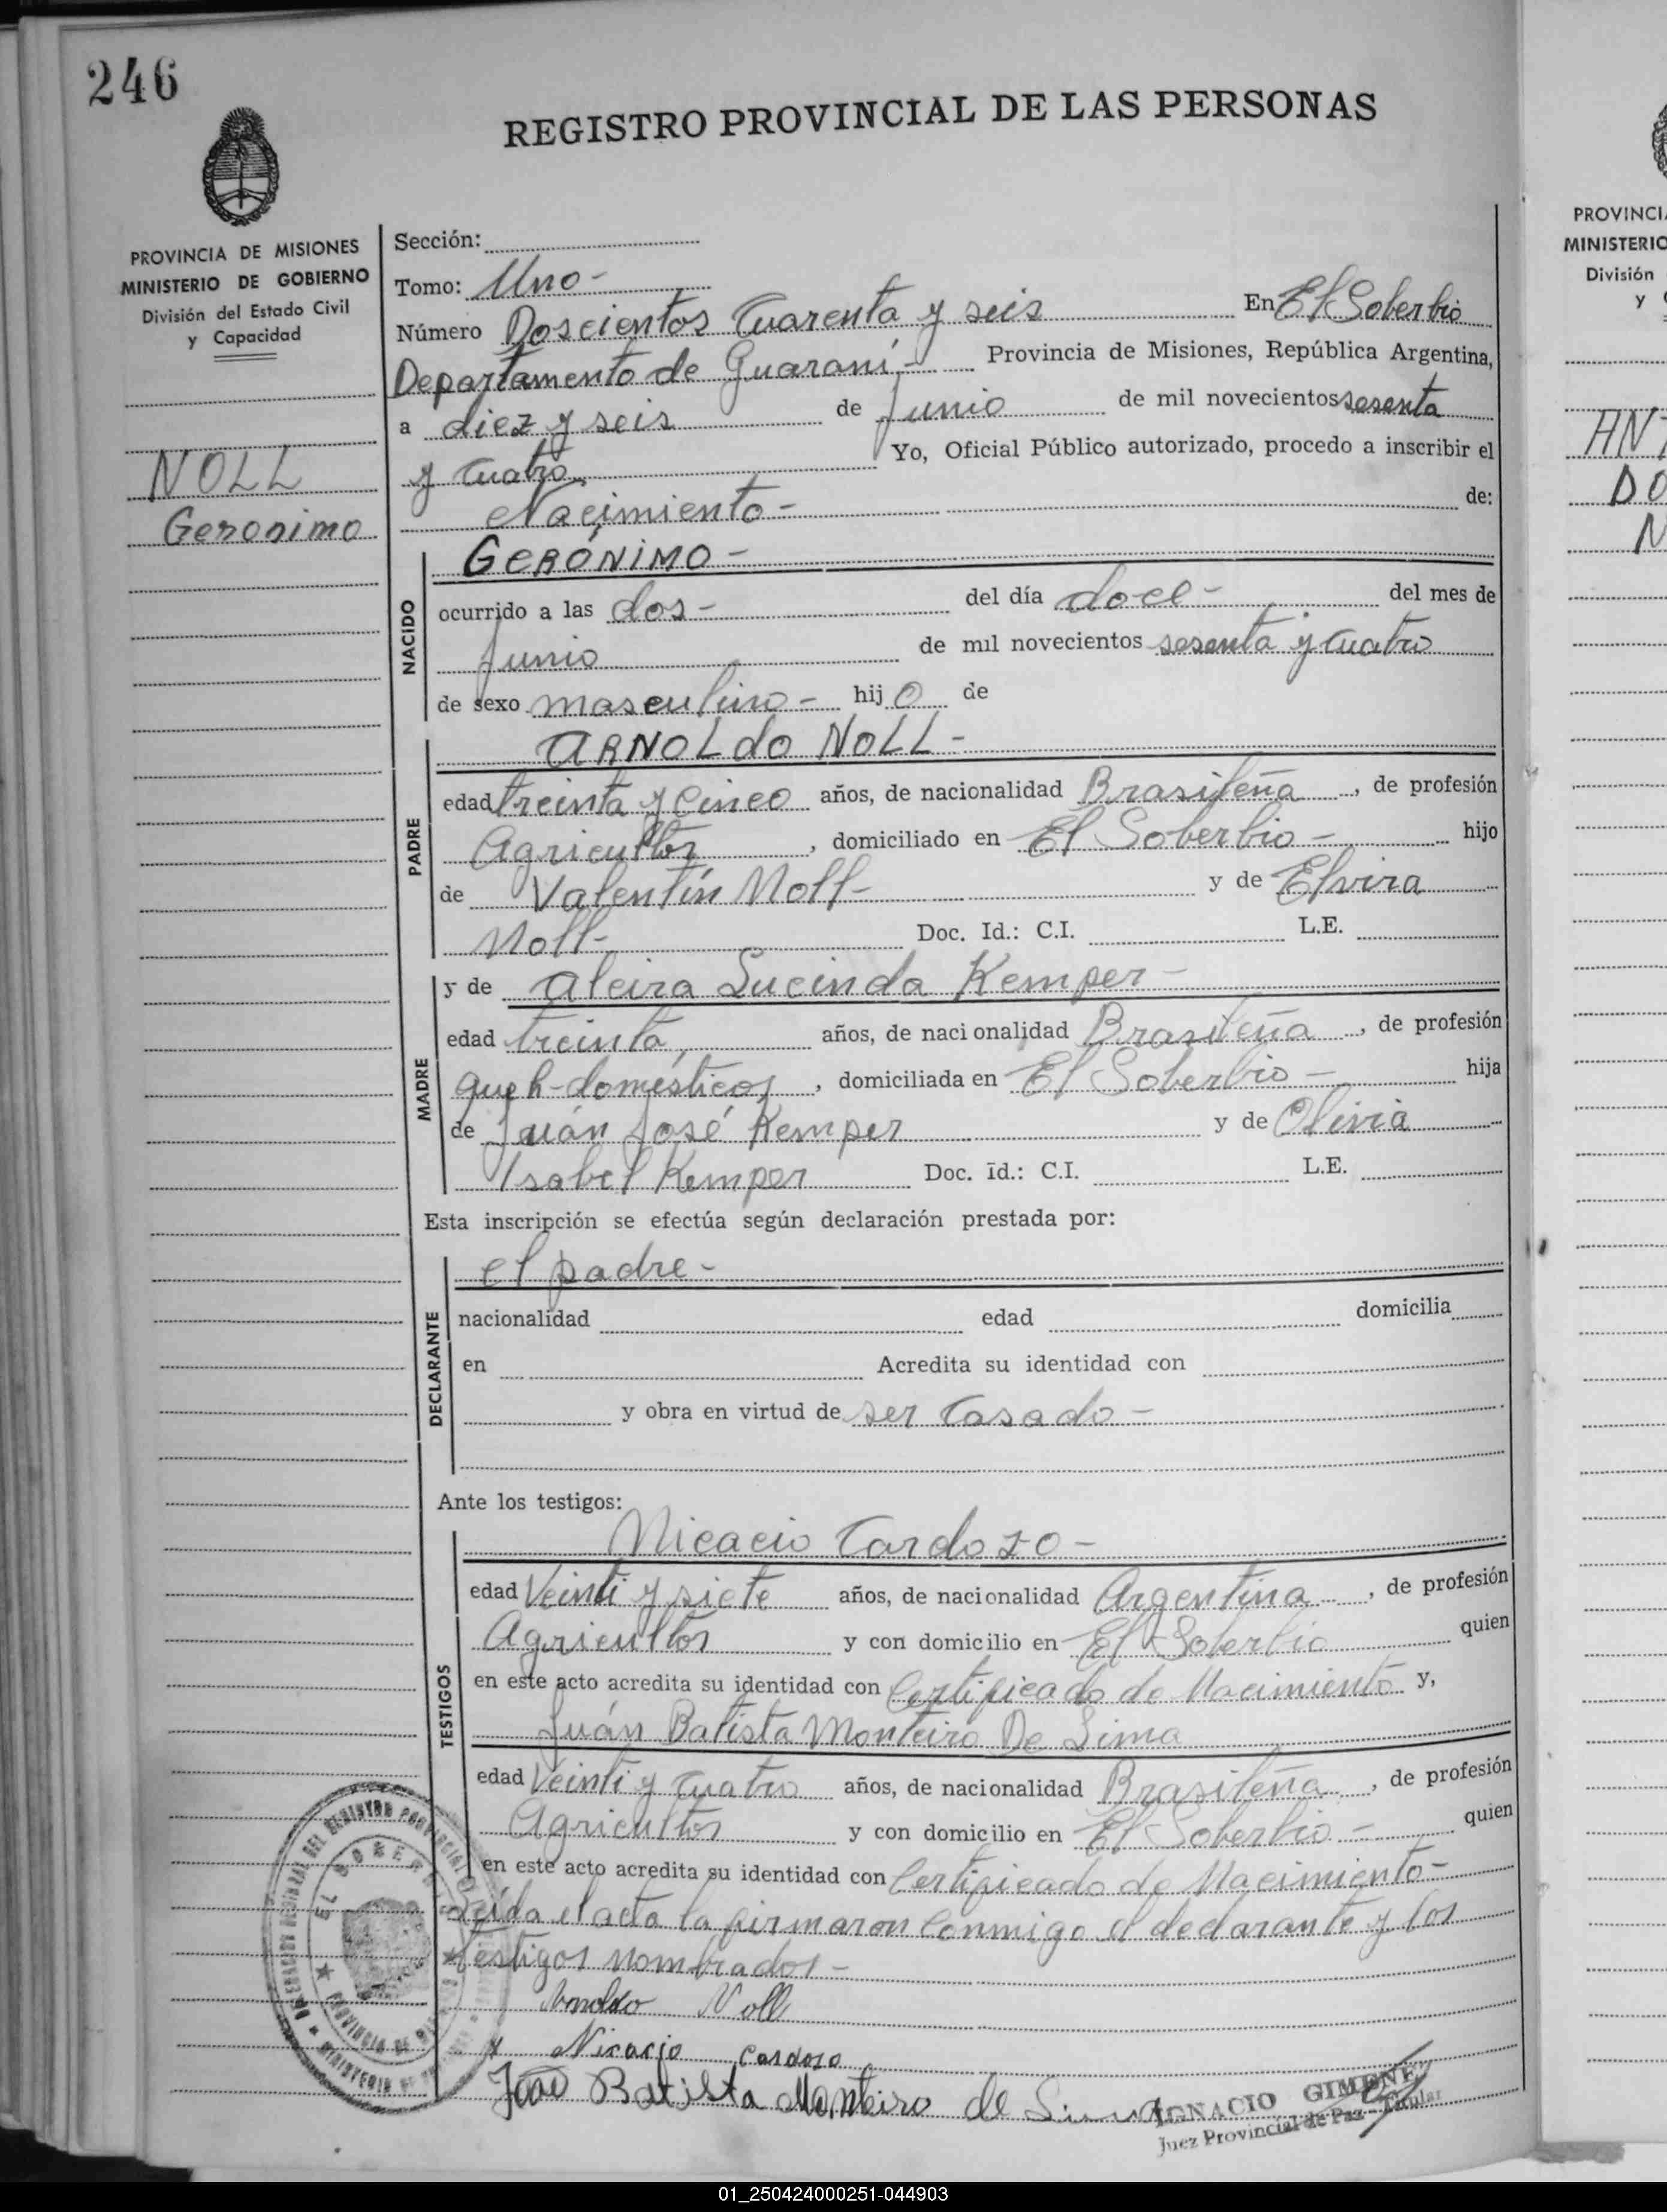 246
REGISTRO PROVINCIAL DE LAS PERSONAS
PROVINCIA DE MISIONES
MINISTERIO DE GOBIERNO
División del Estado Civil
y Capacidad
NOLL
Geronimo
Sección:
Tomo: Uno-
Número Doscientos Cuarenta y seis En El Soberbio
Departamento de Guaraní- Provincia de Misiones, República Argentina,
a diez y seis de Junio de mil novecientos sesenta
y cuatro. Yo, Oficial Público autorizado, procedo a inscribir el
Nacimiento- de:
NACIDO
GERÓNIMO-
ocurrido a las dos- del día doce- del mes de
Junio de mil novecientos sesenta y cuatro
de sexo masculino- hijo de
PADRE
ARNOLdo NOLL-
edad treinta y Cinco años, de nacionalidad Brasileña, de profesión
Agricultor, domiciliado en El Soberbio- hijo
de Valentín Noll- y de Elvira
Noll- Doc. Id.: C.I. L.E.
MADRE
y de Alcira Lucinda Kemper-
edad treinta, años, de nacionalidad Brasileña, de profesión
queh-domésticos, domiciliada en El Soberbio- hija
de Juán José Kemper y de Olivia
Isabel Kemper Doc. Id.: C.I. L.E.
Esta inscripción se efectúa según declaración prestada por:
DECLARANTE
el padre-
nacionalidad edad domicilia
en Acredita su identidad con
y obra en virtud de ser Casado-
Ante los testigos:
TESTIGOS
Nicacio Cardozo-
edad Veinti y siete años, de nacionalidad Argentina, de profesión
Agricultor y con domicilio en El Soberbio quien
en este acto acredita su identidad con Certificado de Nacimiento y,
Juán Batista Monteiro De Lima
edad Veinti y cuatro años, de nacionalidad Brasileña, de profesión
Agricultor y con domicilio en El Soberbio- quien
en este acto acredita su identidad con Certificado de Nacimiento-
Leída el acta la firmaron Conmigo el declarante y los
testigos nombrados-
Arnoldo Noll
x Nicacio Cardozo
João Batista Monteiro de Lima
IGNACIO GIMENEZ
Juez Provincial de Paz - Titular
PROVINCI
MINISTERIO
División
y
DO
N
01_250424000251-044903